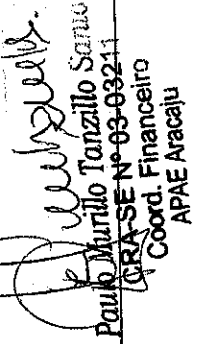 Paulo Murillo Tanzillo Santo
CRA-SE Nº 03-03211
Coord. Financeiro
APAE Aracaju